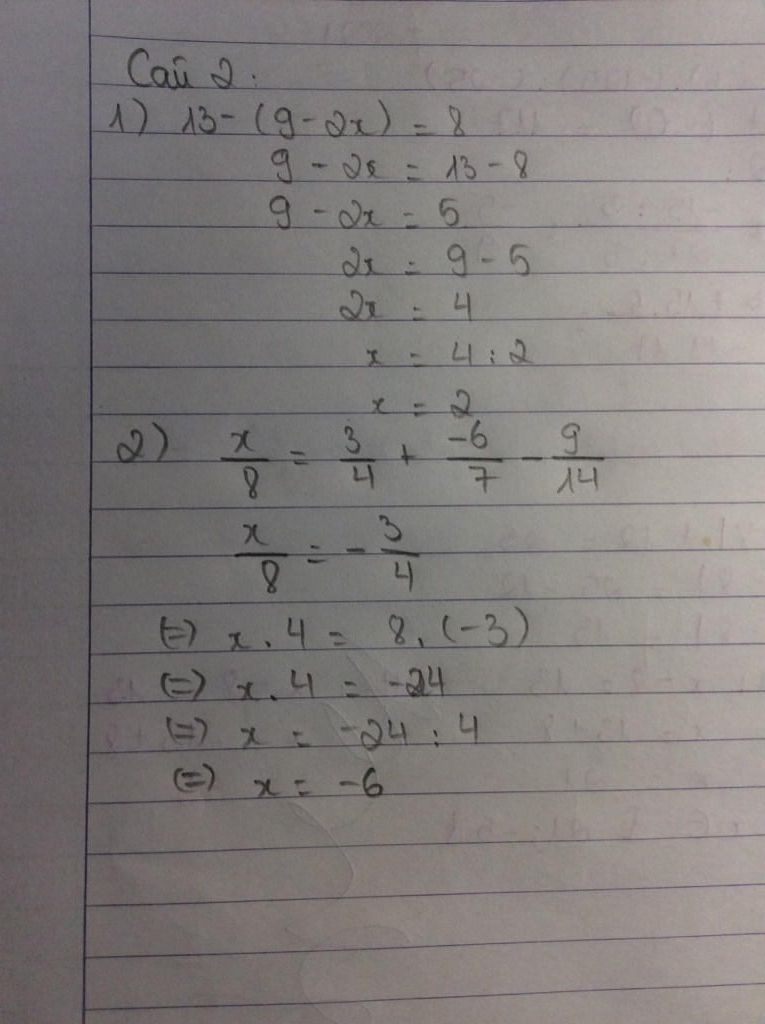 Câu 2:
1) 13 - (9 - 2x) = 8
9 - 2x = 13 - 8
9 - 2x = 5
2x = 9 - 5
2x = 4
x = 4 : 2
x = 2
2) x/8 = 3/4 + -6/7 - 9/14
x/8 = - 3/4
(=) x . 4 = 8 . (-3)
(=) x . 4 = -24
(=) x = -24 : 4
(=) x = -6